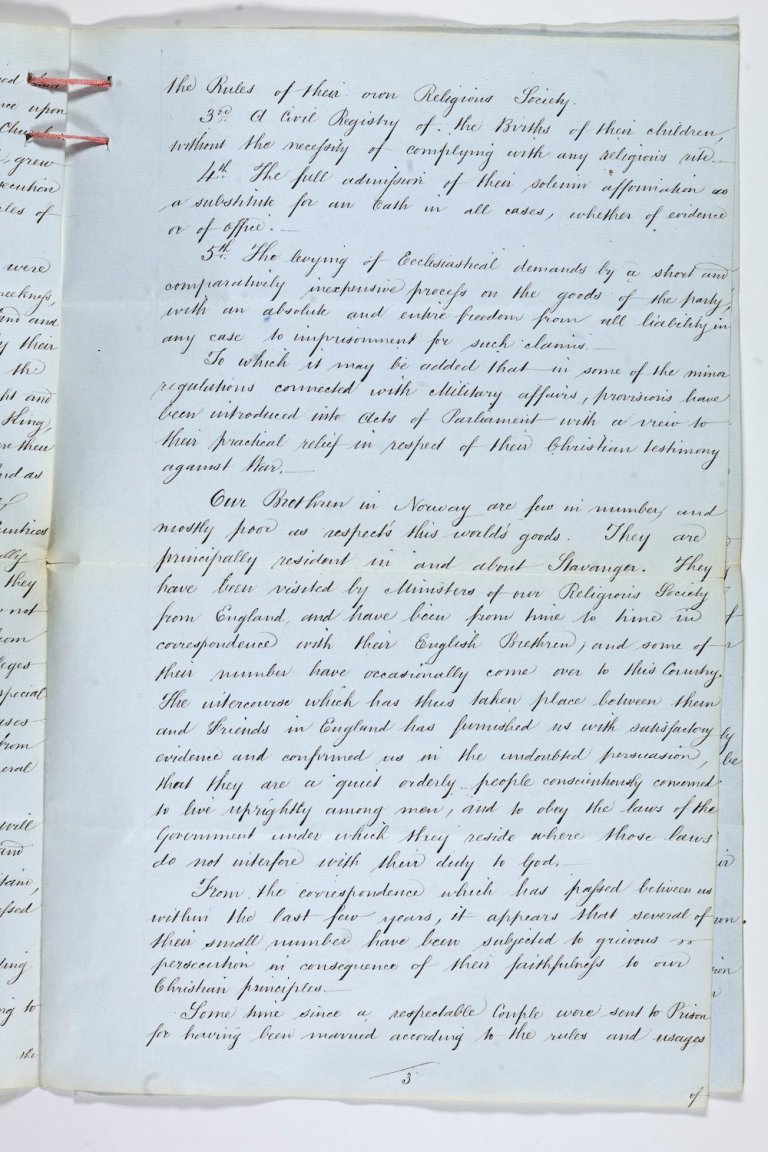 the Rules of their own Religious Society.
3rd A Civil Registry of the Births of their children,
without the necessity of complying with any religious rite.—
4th The full admission of their solemn affirmation as
a substitute for an Oath in all cases, whether of evidence
or of office.—
5th The levying of Ecclesiastical demands by a short and
comparatively inexpensive process on the goods of the party,
with an absolute and entire freedom from all liability in
any case to imprisonment for such claims.—
To which it may be added that in some of the minor
regulations connected with Military affairs, provisions have
been introduced into Acts of Parliament with a view to
their practical relief in respect of their Christian testimony
against War.—
Our Brethren in Norway are few in number, and
mostly poor as respects this world's goods. They are
principally resident in and about Stavanger. They
have been visited by Ministers of our Religious Society
from England, and have been from time to time in
correspondence with their English Brethren; and some of
their number have occasionally come over to this Country.
The intercourse which has thus taken place between them
and Friends in England has furnished us with satisfactory
evidence and confirmed us in the undoubted persuasion,
that they are a quiet orderly people conscientiously concerned
to live uprightly among men, and to obey the laws of the
Government under which they reside where those laws
do not interfere with their duty to God.—
From the correspondence which has passed between us
within the last few years, it appears that several of
their small number have been subjected to grievous
persecution in consequence of their faithfulness to our
Christian principles.—
Some time since a respectable Couple were sent to Prison
for having been married according to the rules and usages
3
of